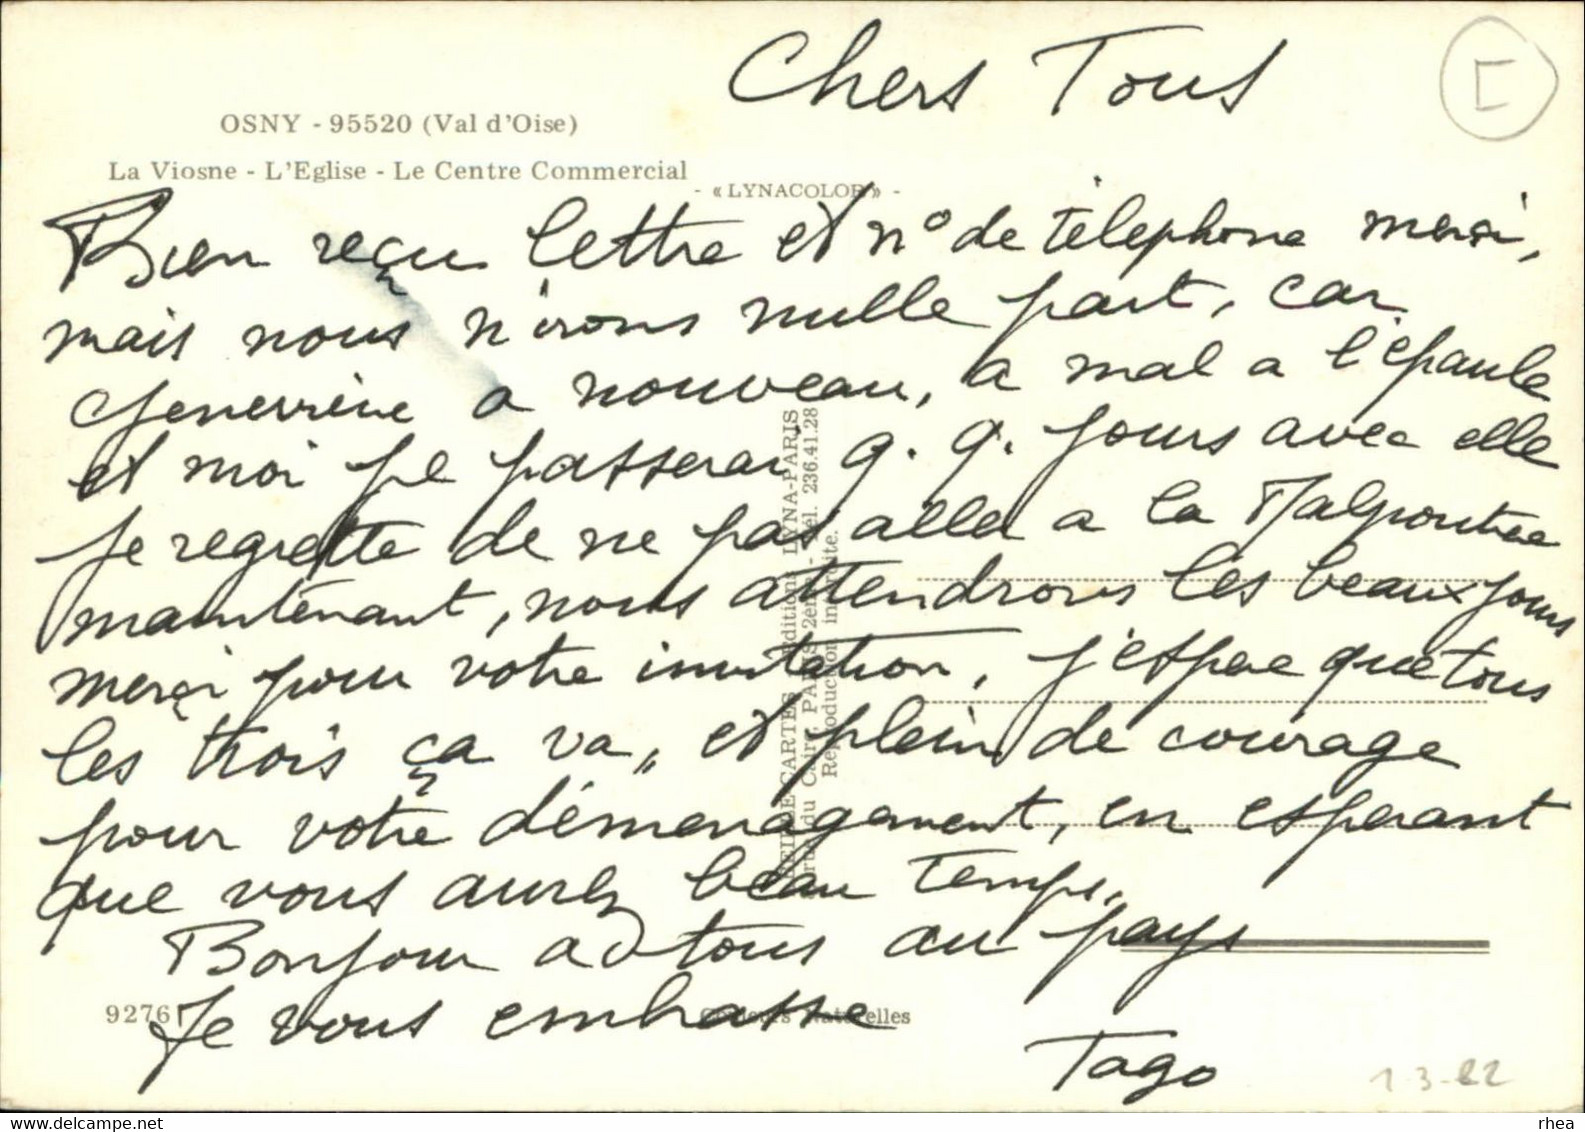 Chers Tous
E
OSNY - 95520 (Val d'Oise)
La Viosne - L'Eglise - Le Centre Commercial
- « LYNACOLOR » -
Bien reçu lettre et n° de télephone merci,
mais nous n'irons nulle part, car
Geneviève a nouveau, a mal a l'épaule
et moi je passerai q. q. jours avec elle
je regrette de ne pas aller a la
maintenant, nous attendrons les beaux jours
merci pour votre invitation, j'espere que tous
les trois ça va,, et plein de courage
pour votre déménagement, en esperant
que vous aurez beau temps,
Bonjour a tous au pays
Je vous embrasse
Tago
9276
Couleurs Naturelles
REINE CARTES Editions LYNA-PARIS
rue du Caire, PARIS 2ème - Tél. 236.41.28
Reproduction interdite.
delcampe.net
rhea